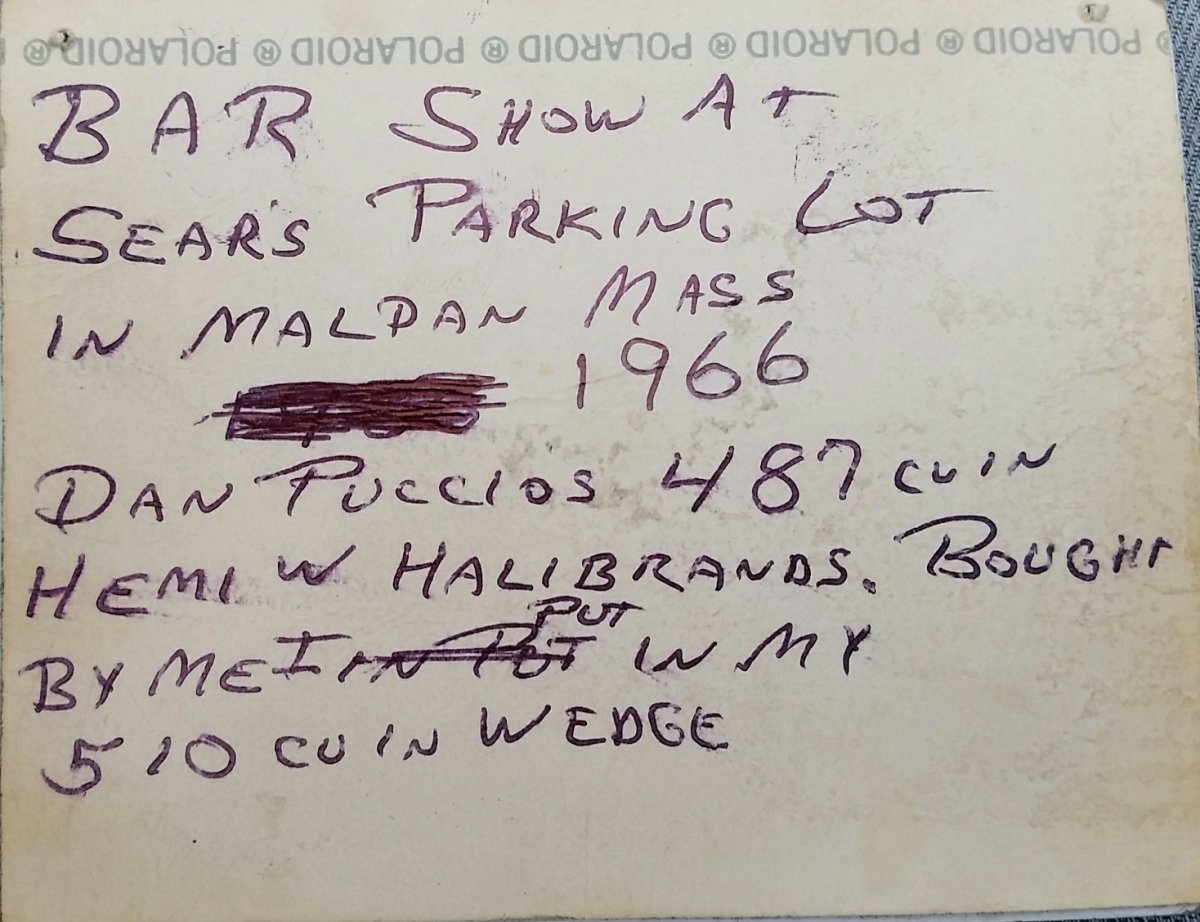 ® POLAROID ® POLAROID ® POLAROID ® POLAROID ® POLAROID ®
BAR SHOW AT
SEARS PARKING LOT
IN MALDAN MASS
1966
DAN PUCCIOS 487 CU IN
HEMI W HALIBRANDS. BOUGHT
PUT
BY ME I IN POT IN MY
510 CU IN WEDGE